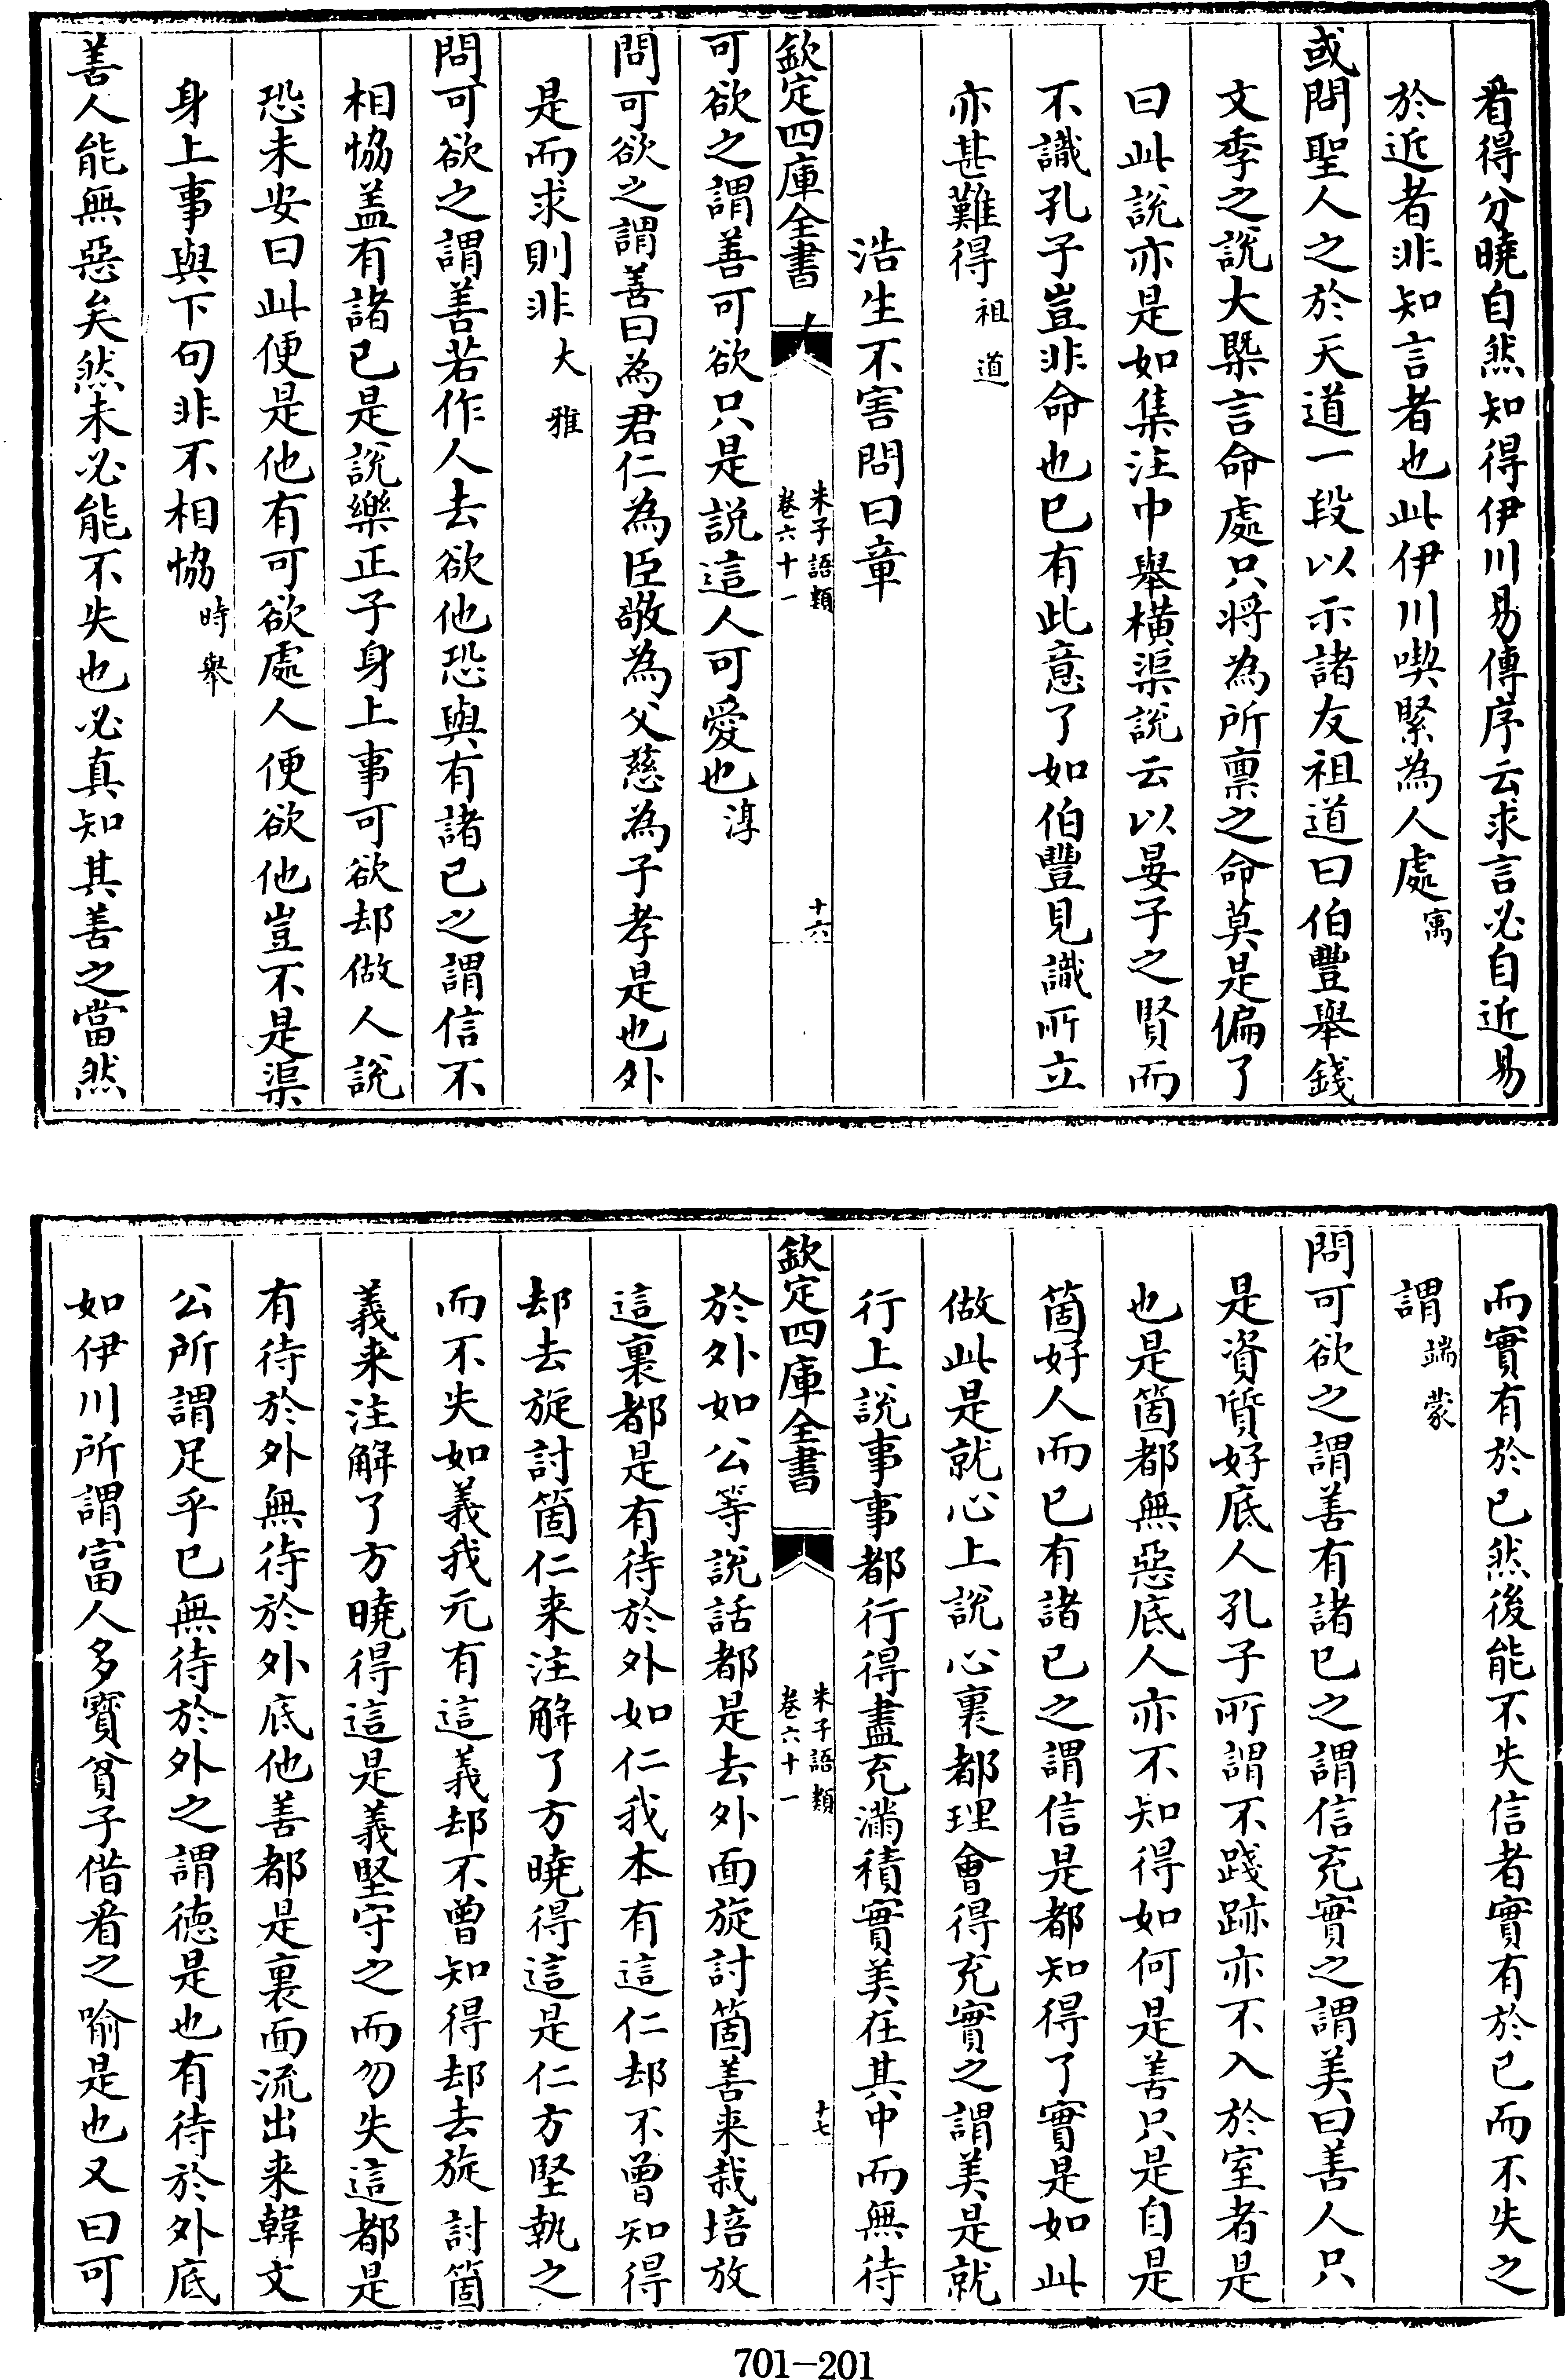 看得分曉自然知得伊川易傳序云求言必自近易
於近者非知言者也此伊川喫緊為人處寓
或問聖人之於天道一段以示諸友祖道曰伯豐舉錢
文季之說大槩言命處只將為所稟之命莫是偏了
曰此說亦是如集注中舉橫渠說云以晏子之賢而
不識孔子豈非命也已有此意了如伯豐見識所立
亦甚難得祖道
浩生不害問曰章
欽定四庫全書
朱子語類
卷六十一
十六
可欲之謂善可欲只是說這人可愛也淳
問可欲之謂善曰為君仁為臣敬為父慈為子孝是也外
是而求則非大雅
問可欲之謂善若作人去欲他恐與有諸已之謂信不
相恊盖有諸已是說樂正子身上事可欲却做人說
恐未安曰此便是他有可欲處人便欲他豈不是渠
身上事與下句非不相恊時舉
善人能無惡矣然未必能不失也必真知其善之當然
而實有於已然後能不失信者實有於已而不失之
謂端蒙
問可欲之謂善有諸已之謂信充實之謂美曰善人只
是資質好底人孔子所謂不踐跡亦不入於室者是
也是箇都無惡底人亦不知得如何是善只是自是
箇好人而已有諸已之謂信是都知得了實是如此
做此是就心上說心裏都理會得充實之謂美是就
行上說事事都行得盡充滿積實美在其中而無待
欽定四庫全書
朱子語類
卷六十一
十七
於外如公等說話都是去外面旋討箇善来栽培放
這裏都是有待於外如仁我本有這仁却不曾知得
却去旋討箇仁来注解了方曉得這是仁方堅執之
而不失如義我元有這義却不曾知得却去旋討箇
義来注解了方曉得這是義堅守之而勿失這都是
有待於外無待於外底他善都是裏面流出来韓文
公所謂足乎已無待於外之謂徳是也有待於外底
如伊川所謂富人多寳貧子借看之喻是也又曰可
701-201